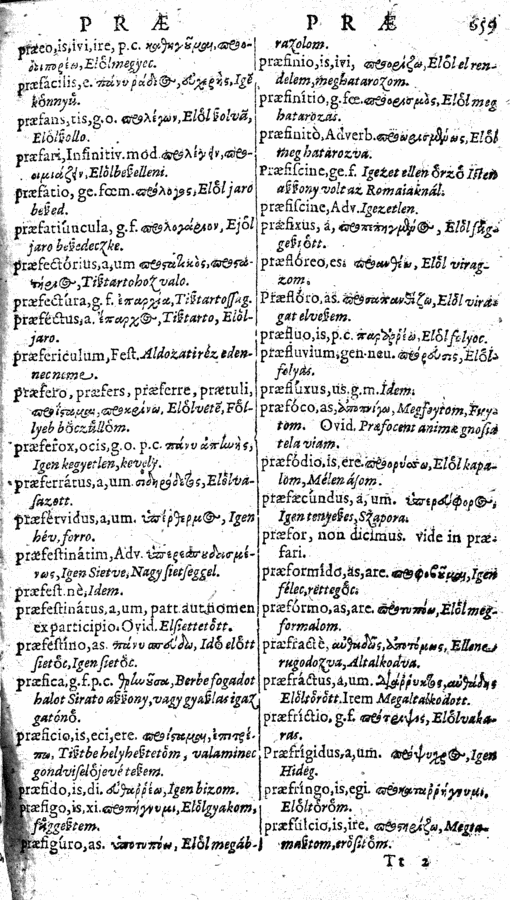 PRÆ PRÆ 659
præeo, is, ivi, ire, p.c. καθηγοῦμαι, προο-
δειπορέω, Elôlmegyec.
præfacilis, e. πάνυ ῥάδι@, εὐχερὴς, Igẽ
kônnyû.
præfans, tis, g.o. προλέγων, Elôl ßolvã,
Elôlßollo.
præfari, Infinitiv. mod. προλέγειν, προ-
οιμιάζειν, Elôlbeßelleni.
præfatio, ge. fœm. πρόλογος, Elôl jaro
beßed.
præfatiúncula, g.f. προλογίδιον, Ejôl
jaro beßedeczke.
præfectórius, a, um
Tißtartohoz valo.
præfectúra, g.f. ἐπαρχία, Tißtartoßag.
præféctus, a. ἔπαρχ@, Tißtarto, Elôl-
jaro.
præfericulum, Fest. Aldozatiréz eden-
nec neme.
præfero, præfers, præferre, prætuli,
προΐσταμαι, προκρίνω, Elôlvetẽ, Fôl-
lyeb bôczûllôm.
præferox, ocis, g.o. p.c. πάνυ ἀπλωὴς,
Igen kegyetlen, kevely.
præferrátus, a, um. Elôlva-
sazott.
præférvidus, a, um. ὑπέρθερμ@, Igen
hév, forro.
præfestinátim, Adv. ὑπερεσπουδεισμέ-
νως, Igen Sietve, Nagy sietseggel.
præfest.nè, Idem.
præfestinátus, a, um, part. aut nomen
ex participio. Ovid. Elsiettetôtt.
præfestíno, as. πάνυ σπεύδω, Idô elôtt
sietôc, Igen sietôc.
præfica, g.f. p.c. θρίωῦσα, Berbe fogadot
halot Sirato aßßony, vagy gyaßlas igaz
gatónô.
præficio, is, eci, ere. προΐσταμαι, ἐπιτρέ-
πω, Tißtbe helyheßtetôm, valaminec
gondviselôjevé teßem.
præfido, is, di. Igen bizom.
præfígo, is, xi. προπήγνυμι, Elôlgyakom,
fûggeßtem.
præfigúro, as. ὑποτυπόω, Elôl megáb-
razolom.
præfinio, is, ivi, προορίζω, Elôl el ren-
delem, meghatarozom.
præfinítio, g. fœ. προορισμὸς, Elôl meg
hatarozás.
præfinitò, Adverb. προωρισμένως, Elôl
meg határozva.
Præfiscine, ge. f. Igezet ellen ôrzô Isten
aßßony volt az Romaiaknál.
præfiscine, Adv. Igezetlen.
præfixus, á, προπηγμέν@, Elôl fûg-
geßtôtt.
præflóreo, es. προανθέω, Elôl virag-
zom.
Præflóro, as. προαπανθίζω, Elôl virá-
gat elveßem.
præfluo, is, p.c. παραρρέω, Elôl folyoc.
præflúvium, gen. neu. Elôl-
folyás.
præflúxus, us, g.m. Idem.
præfóco, as, ἀποπνίγω, Megfoytom, Fuya
tom. Ovid. Præfocent animæ gnosia
tela viam.
præfódio, is, ere. προορύσσω, Elôl kapa-
lom, Mélen ásom.
præfœcúndus, a, um.
Igen tenyeßes, Szapora.
præfor, non dicimus. vide in præ-
fari.
præformído, as, are. προφοβοῦμαι, Igen
félec, rettegôc.
præfórmo, as, are, προτυπόω, Elôl meg-
formalom.
præfractè, αὐθαδῶς, ἀποτόμως, Ellene
rugodozva, Altalkodva.
præfráctus, a, um. αὐθάδης
Elôltôrôtt. Item Megaltalkodott.
præfríctio, g.f. πρότριψις, Elôlvaka-
rás.
Præfrígidus, a, um. πρόψυχρ@, Igen
Hideg.
præfringo, is, egi. προκαταρρήγνυμι,
Elôltôrôm.
præfúlcio, is, ire. προστηρίζω, Megta-
maßtom, erôsitôm.
Tt 2